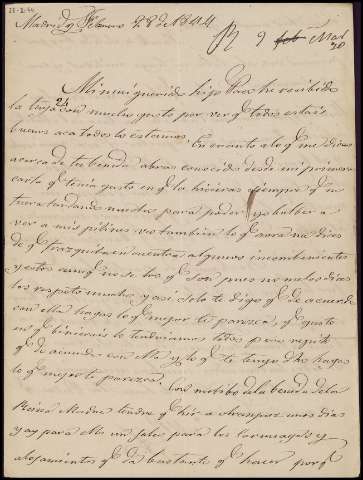 28-2-44
Madrid y Febrero 28 de 1844
R 9 feb Mzo
20
Mi mui querido hijo Paco he recibido
la tuya 24 con mucho gusto por ver qe todos estais
buenos aca todos lo estamos. En cuanto a lo qe me dices
acerca de tu benida abras conocido desde mi primera
carta qe tenia gusto en qe la hicieras siempre qe no
fuera tardando mucho para poder yo bolber a
ver a mis pitines veo tambien lo qe aora me dices
de qe Frazquita encuentra algunos incombenientes
y estos aunqe no se los qe son pues no me los dices
los respeto mucho y asi solo te digo qe de acuerdo
con ella hagas lo qe mejor te paresca, qe gusto
en qe binierais lo tendriamos todos pero repito
qe de acuerdo con ella y lo qe te tengo dho hagas
lo qe mejor te paresca. Con motibo de la benida de la
Reina Madre tendre qe hir a Aranjuez unos dias
y ay para ello un jaleo para los carruages y
alojamientos qe da bastante qe hacer porqe